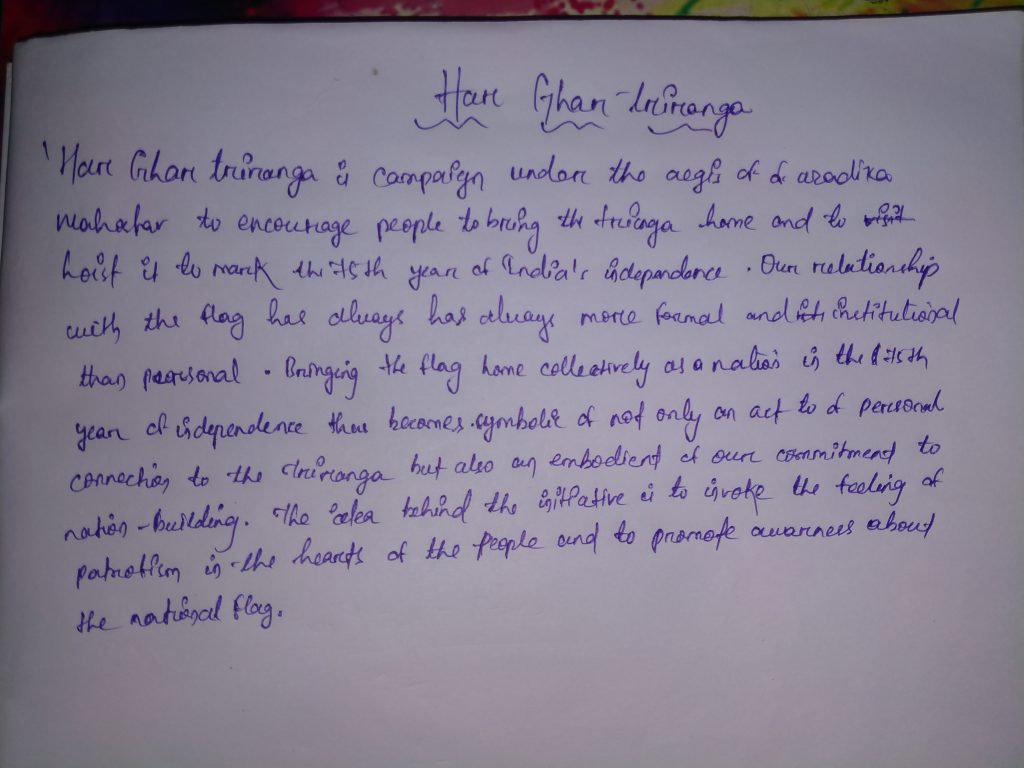 Har Ghar triranga
'Har Ghar triranga is campaign under the aegis of of azadika
mahotav to encourage people to bring the triranga home and to
hoist it to mark the 75th year of India's independence. Our relationship
with the flag has always has always more formal and institutional
than personal. Bringing the flag home collectively as a nation in the 75th
year of independence thus becomes symbolic of not only an act to of personal
connection to the triranga but also an embodient of our commitment to
nation-building. The idea behind the initiative is to invoke the feeling of
patriotism in the hearts of the people and to promote awarness about
the national flag.